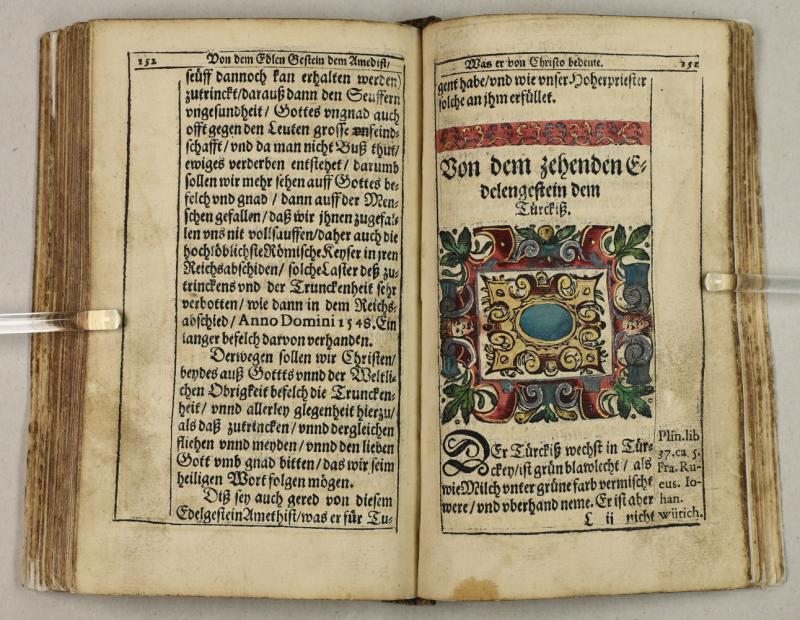 152 Von dem Edlen Gestein dem Amedist/
seüff dannoch kan erhalten werden)
zutrinckt/darauß dann den Seuffern
vngesundheit/ Gottes vngnad auch
offt gegen den Leuten grosse vnfeind-
schafft/ vnd da man nicht Buß thut/
ewiges verderben entstehet/ darumb
sollen wir mehr sehen auff Gottes be-
felch vnd gnad/ dann auff der Men-
schen gefallen/ daß wir jhnen zugefal-
len vns nit vollsauffen/daher auch die
hochlöblichste Römische Keyser in jren
Reichsabschiden/ solche Laster deß zu-
trinckens vnd der Trunckenheit sehr
verbotten/ wie dann in dem Reichs-
abschied/ Anno Domini 1548. Ein
langer befelch darvon verhanden.
Derwegen sollen wir Christen/
beydes auß Gottts vnnd der Weltli-
chen Obrigkeit befelch die Truncken-
heit/ vnnd allerley glegenheit hierzu/
als daß zutrincken/ vnnd dergleichen
fliehen vnnd meyden/ vnnd den lieben
Gott vmb gnad bitten/ das wir seim
heiligen Wort folgen mögen.
Diß sey auch gered von diesem
Edelgestein Amethist/was er für Tu-
Was er von Christo bedeute. 151
gent habe/vnd wie vnser Hoherpriester
solche an jhm erfüllet.
Von dem zehenden E-
delengestein dem
Türckiß.
DEr Türckiß wechst in Tür-
ckey/ist grün blawlecht/ als
wie Milch vnter grüne farb vermischt
were/ vnd vberhand neme. Er ist aber
L ij nicht
Plin. lib
37. ca. 5.
Fra. Ru-
eus. Io-
han.
Würich.